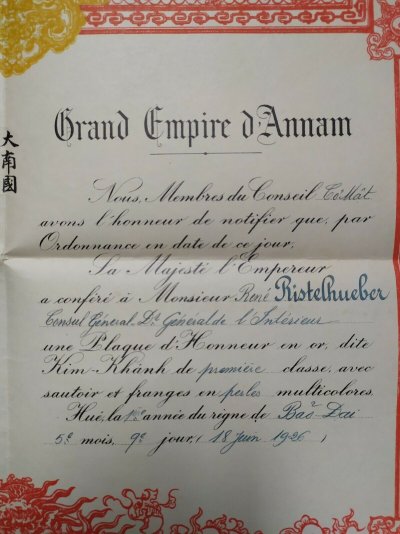 Grand Empire d'Annam
大南國
Nous, Membres du Conseil Cơ Mật
avons l'honneur de notifier que, par
Ordonnance en date de ce jour,
Sa Majesté l'Empereur
a conféré à Monsieur René Ristelhueber
Consul Général - Dr. Général de l'Intérieur
une Plaque d'Honneur en or, dite
Kim-Khánh de première classe, avec
sautoir et franges en perles multicolores.
Hué, la 1ère année du règne de Bảo-Đai
5e mois, 9e jour, ( 18 Juin 1926 )